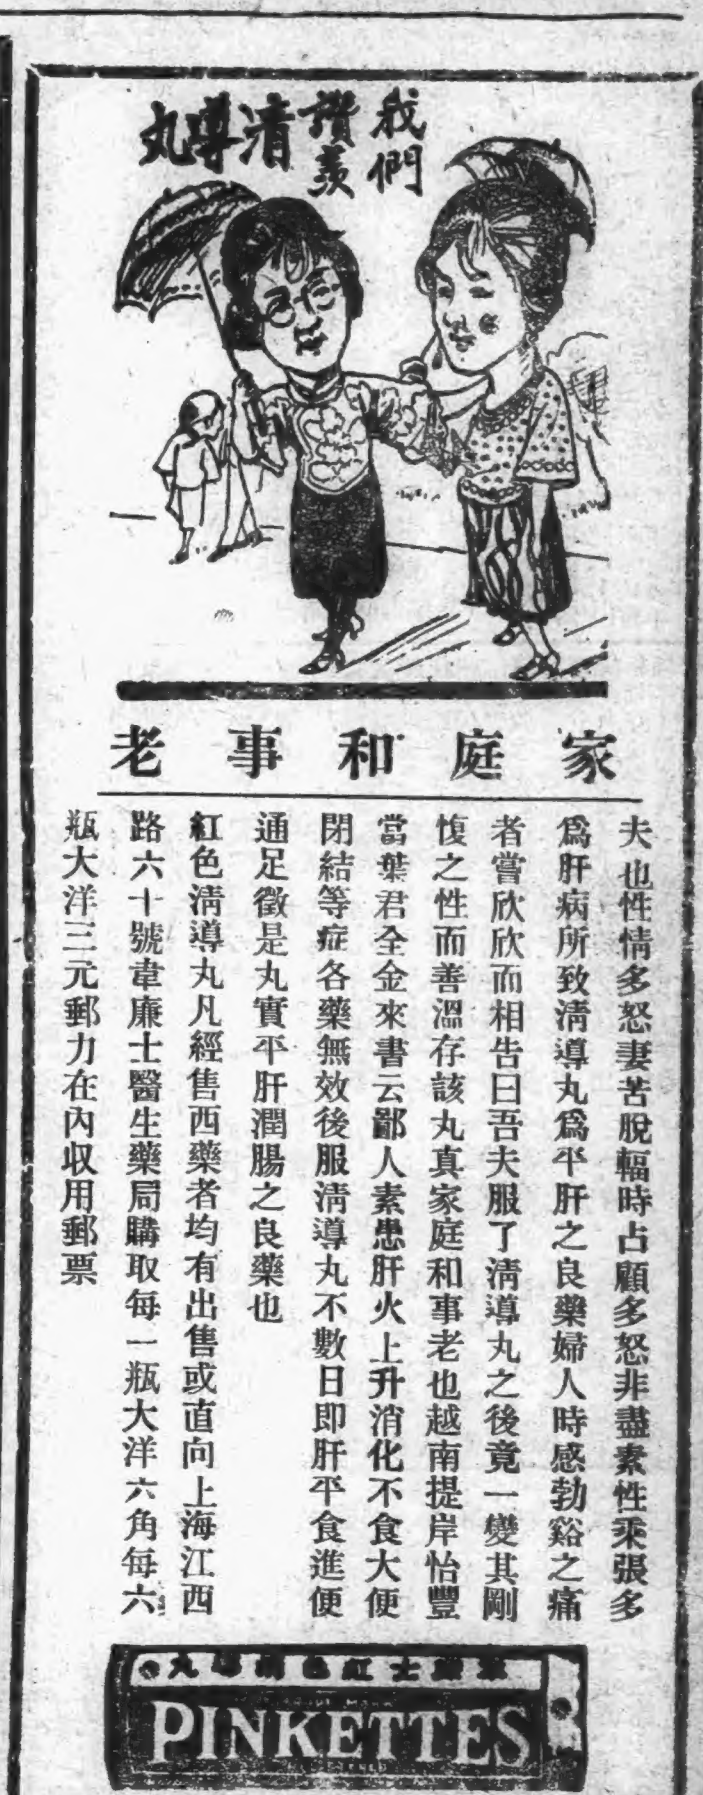 我們
讚羨
清導丸
家庭和事老
夫也性情多怒妻苦脫輻時占顧多怒非盡素性乖張多
爲肝病所致清導丸爲平肝之良藥婦人時感勃谿之痛
者嘗欣欣而相告曰吾夫服了清導丸之後竟一變其剛
愎之性而善溫存該丸真家庭和事老也越南提岸怡豐
當葉君全金來書云鄙人素患肝火上升消化不食大便
閉結等症各藥無效後服清導丸不數日即肝平食進便
通足徵是丸實平肝潤腸之良藥也
紅色清導丸凡經售西藥者均有出售或直向上海江西
路六十號韋廉士醫生藥局購取每一瓶大洋六角每六
瓶大洋三元郵力在內收用郵票
PINKETTES